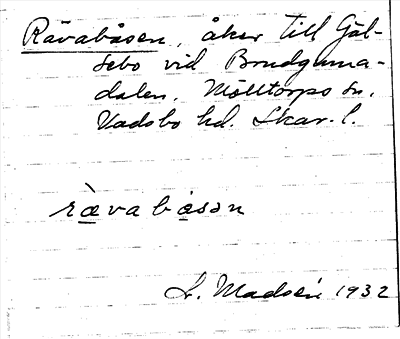 Rävabåsen, åker till Gäl-
sebo vid Brudguma-
dalen. Mölltorps sn.
Vadsbo hd. Skar. l.
ràvabåsən
1932